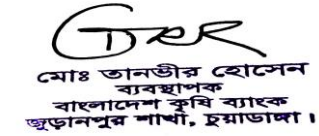 মোঃ তানভীর হোসেন
ব্যবস্থাপক
বাংলাদেশ কৃষি ব্যাংক
জুড়ানপুর শাখা, চুয়াডাঙ্গা।